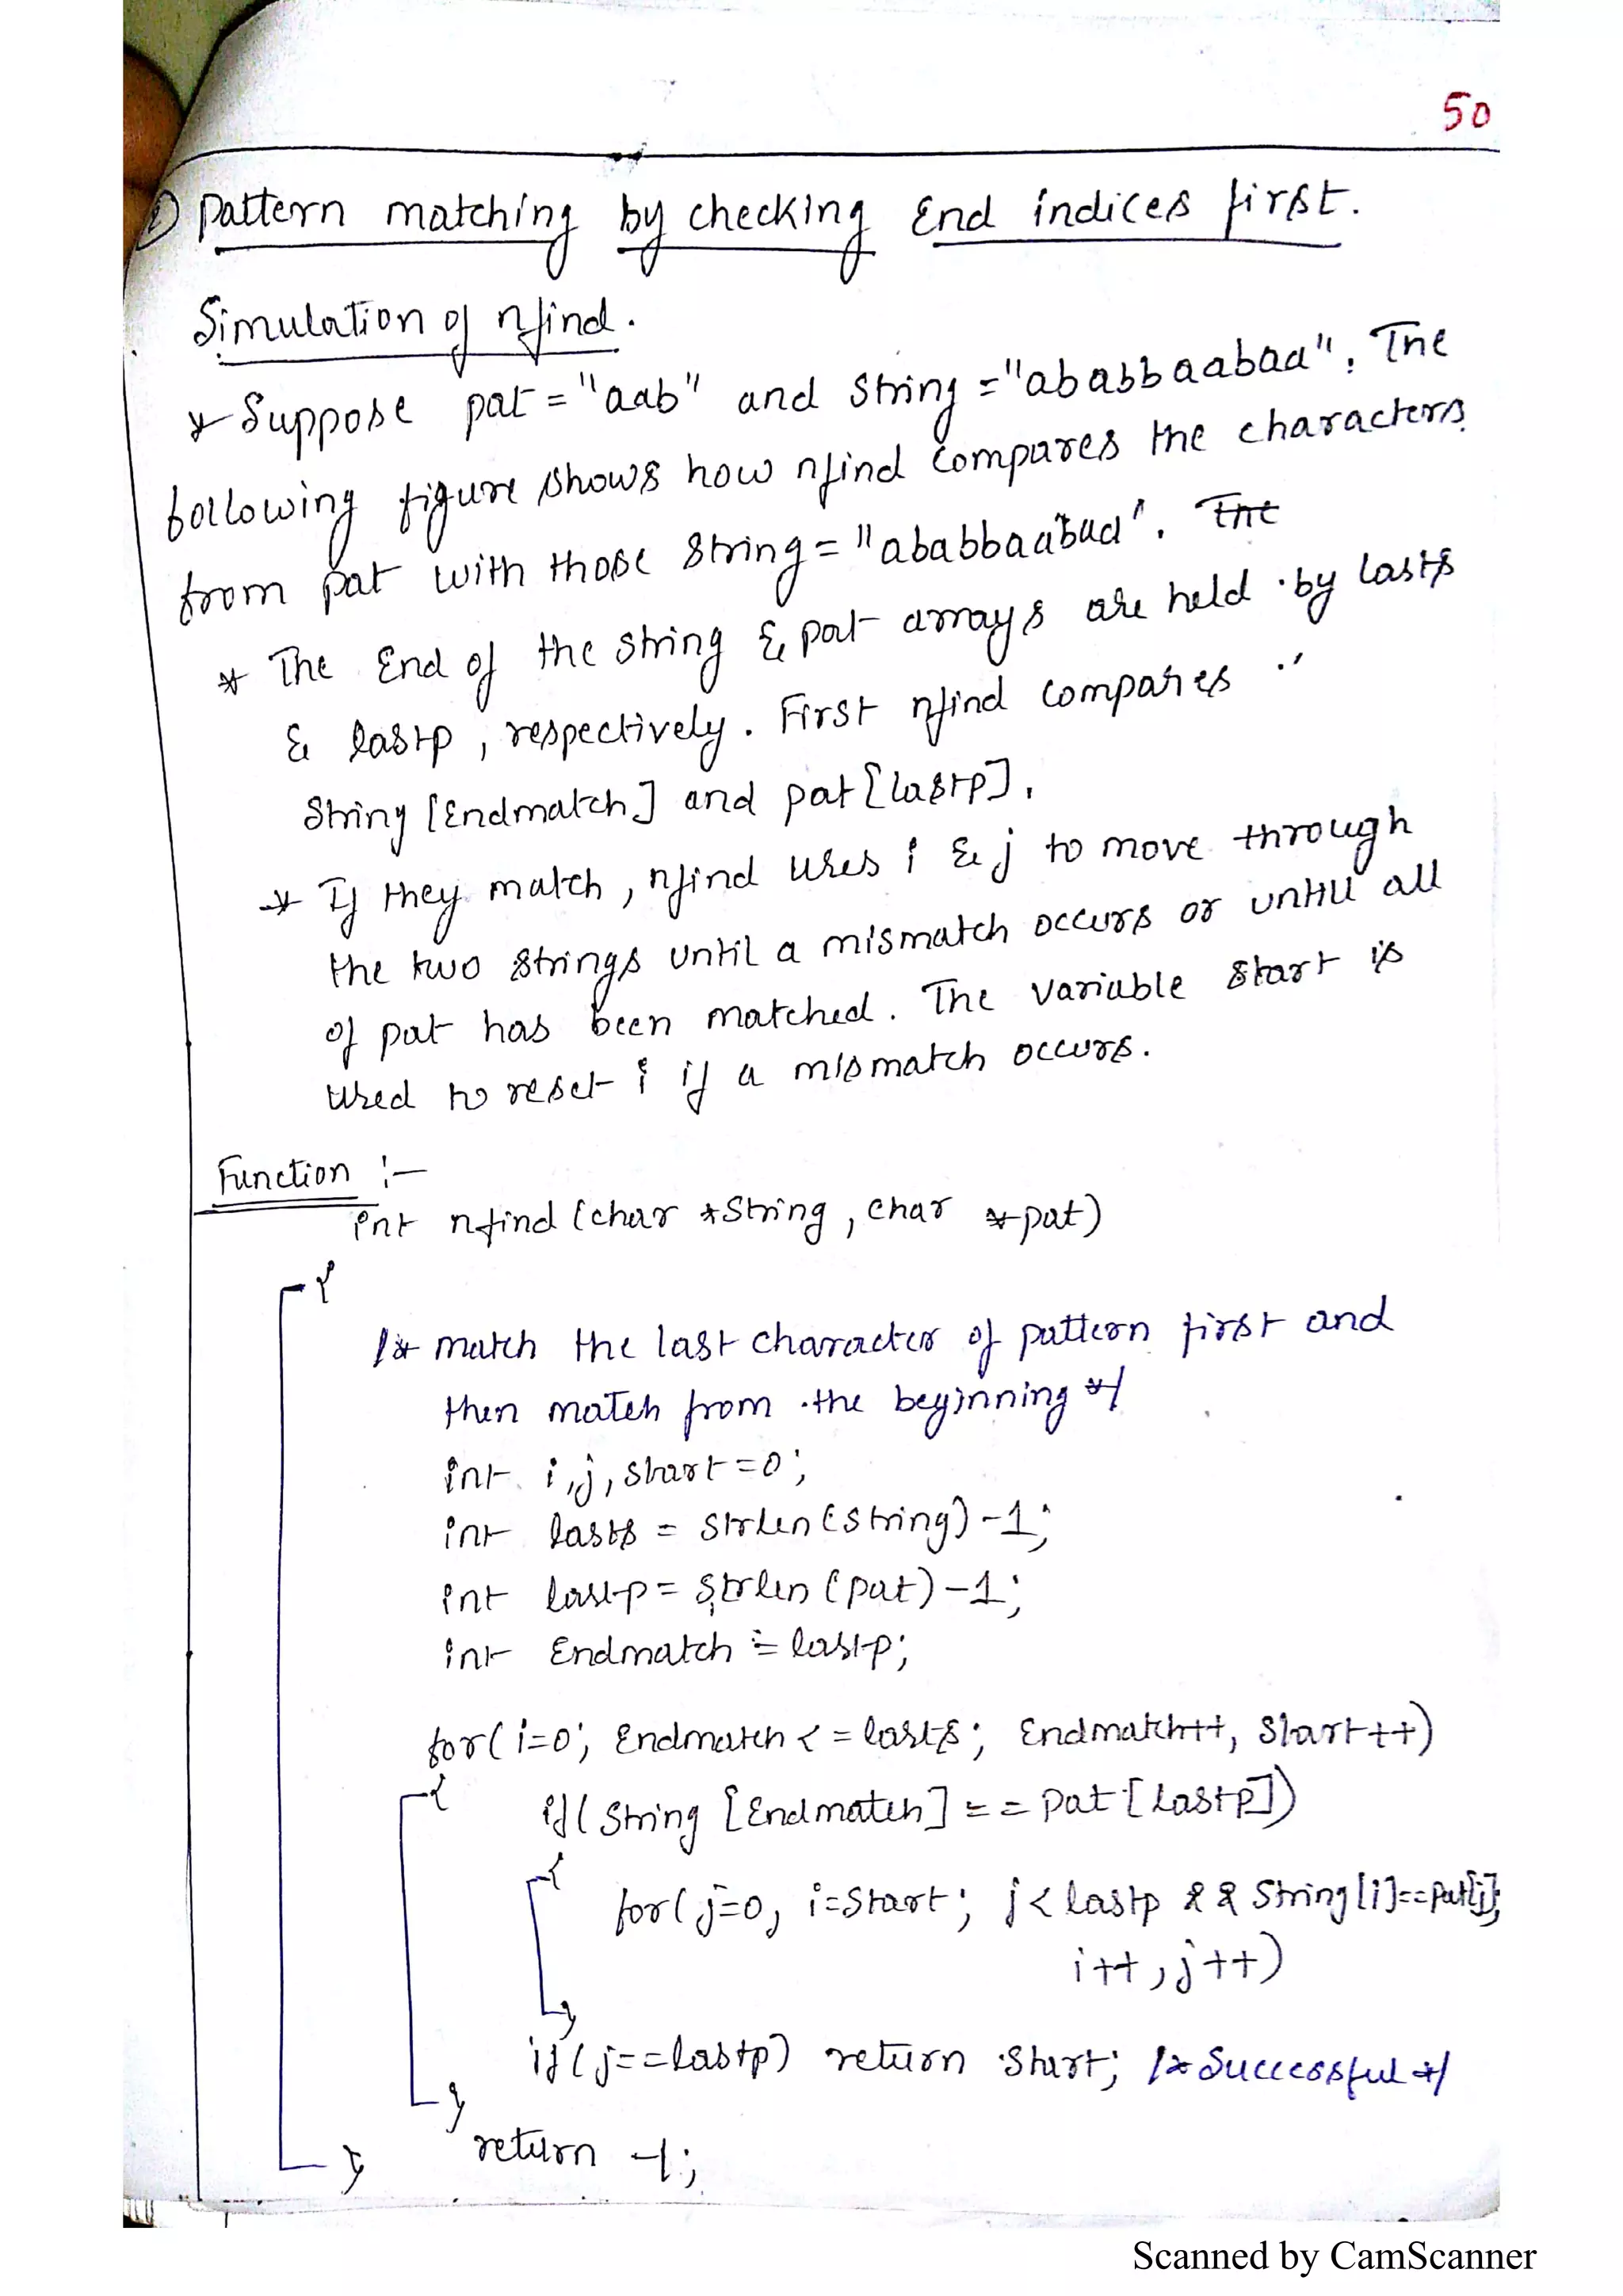 50
2) Pattern matching by checking End indices first.
Simulation of nfind.
* Suppose pat = "aab" and String ="ababbaabaa". The
following figure shows how nfind Compares the characters
from pat with those String = "ababbaabaa". The
* The End of the string & pat arrays are held by lasts
& lastp , respectively. First nfind compares
String [Endmatch] and pat [lastp].
* If they match , nfind uses i & j to move through
the two strings until a mismatch occurs or until all
of pat has been matched. The variable start is
Used to reset i if a mismatch occurs.
Function :-
int nfind (char *String , char *pat)
{
/* match the last character of pattern first and
then match from the beginning */
int i,j, start=0;
int lasts = strlen(string) -1;
int lastp = strlen (pat) -1;
int Endmatch = lastp;
for( i=0; Endmatch <= lasts; Endmatch++, Start++)
{
if( String [Endmatch] == Pat [Lastp])
{
for( j=0, i=Start; j< lastp && String[i]==Pat[j];
i++ , j++)
}
if( j==lastp) return Start; /* Successful */
}
return -1;
}
Scanned by CamScanner